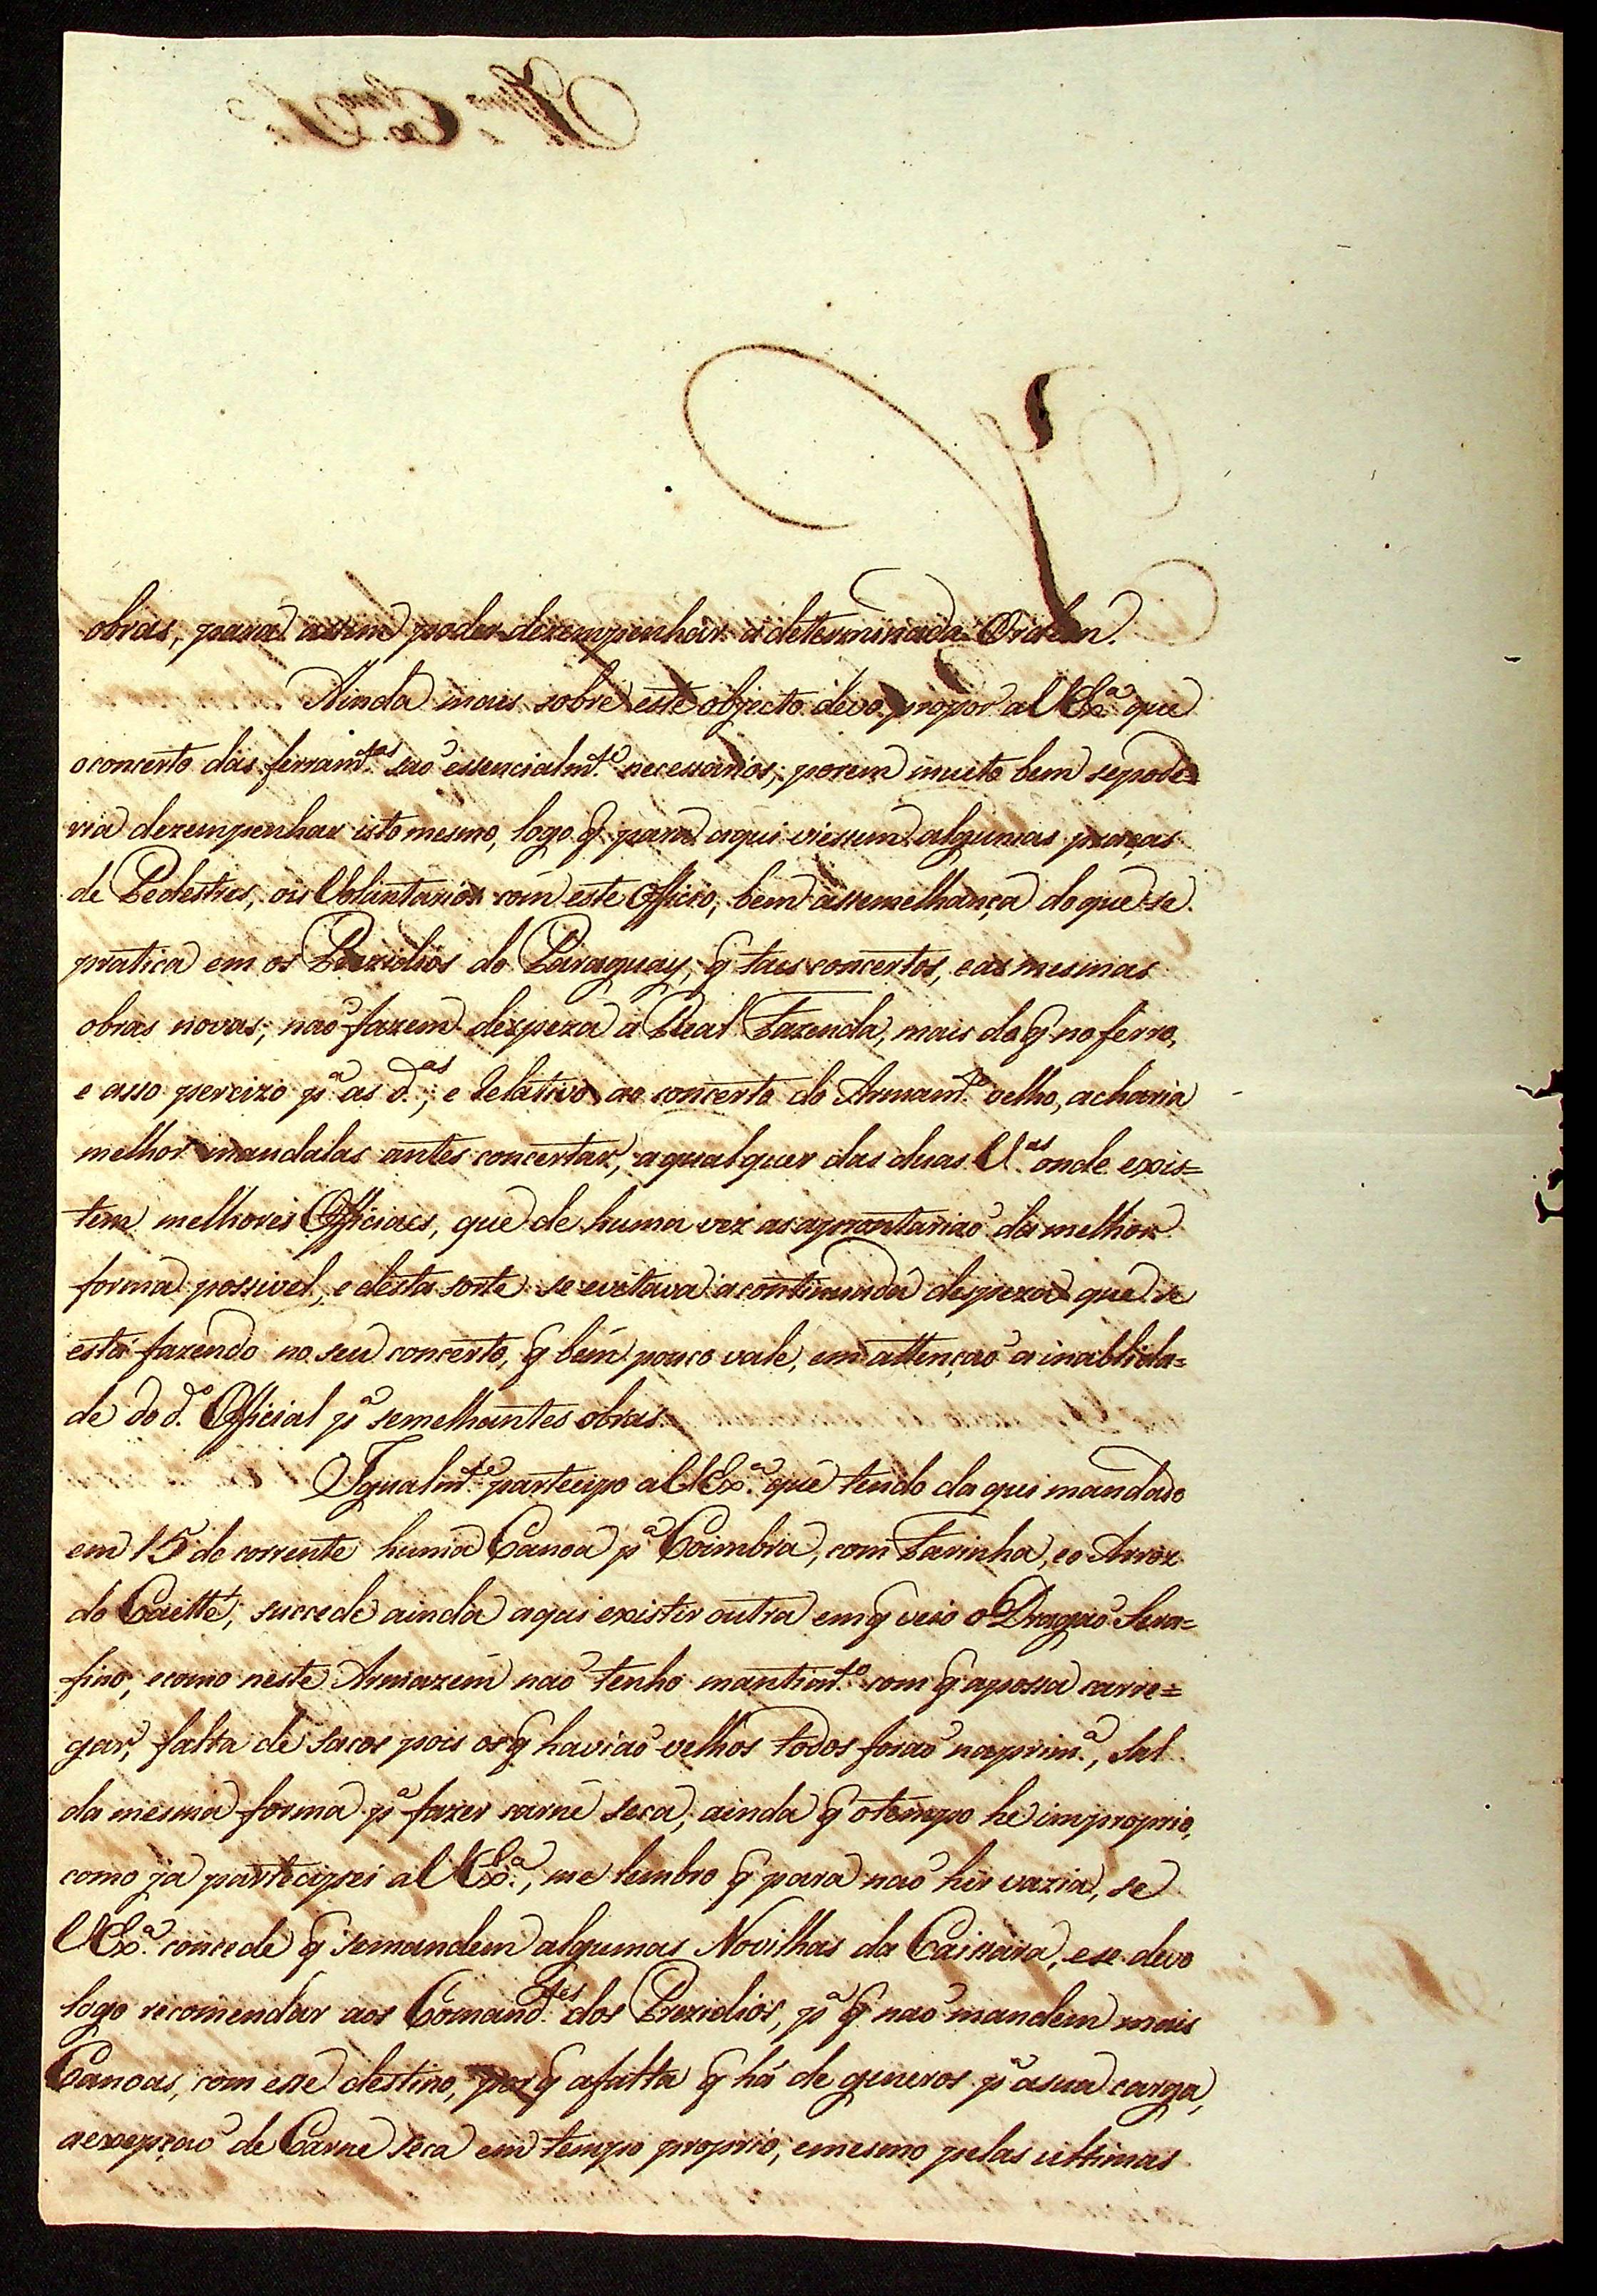 obras, para assim poder dezempenhar a determinada Ordem.
Ainda mais sobre este objecto devo propor a VEx.ª que
o concerto das ferram.tas saõ essencialm.te necessarios, porem muito bem se pode=
ria dezempenhar isto mesmo, logo q para aqui viessem algumas praças
de Pedestres, ou Voluntarios com este Officio, bem assemelhança do que se
pratica em os Prezidios do Paraguay, q taes concertos, e as mesmas
obras novas, naõ fazem despeza a Real Fazenda, mais do q no ferro,
e asso percizo p.ª as d.as; e Relativo ao concerto do Armam.to velho, acharia
melhor mandalas antes concertar, a qualquer das duas V.as onde exis=
tem melhores Officiaes, que de huma vez as aprontariaõ da melhor
forma possivel, e desta sorte se evitava a continuada despeza que se
está fazendo no seu concerto, q bem pouco vale, em attençaõ a inablida=
de do d.º Official p.ª semelhantes obras.
Igualm.te partecipo a VEx.ª que tendo daqui mandado
em 15 do corrente huma Canoa p.ª Coimbra, com Farinha, e o Arroz
do Caetté, succede ainda aqui existir outra em q veio o Dragaõ Sera=
fino, e como neste Armazem naõ tenho mantim.to com q a possa carre=
gar, falta de sacos pois os q haviaõ velhos todos foraõ na prim.ª, Sal
da mesma forma p.ª fazer carne seca, ainda q o tempo he improprio,
como ja partecipei a VEx.ª, me lembro q para naõ hir vazia, se
VEx.ª concede q se mandem algumas Novilhas da Caissara, e se devo
logo recomendar aos Comand.tes dos Prezidios, p.ª q naõ mandem mais
Canoas, com esse destino, por q a falta q há de generos p.ª a sua carga,
a excepçaõ de Carne seca em tempo proprio, e mesmo pelas ultimas